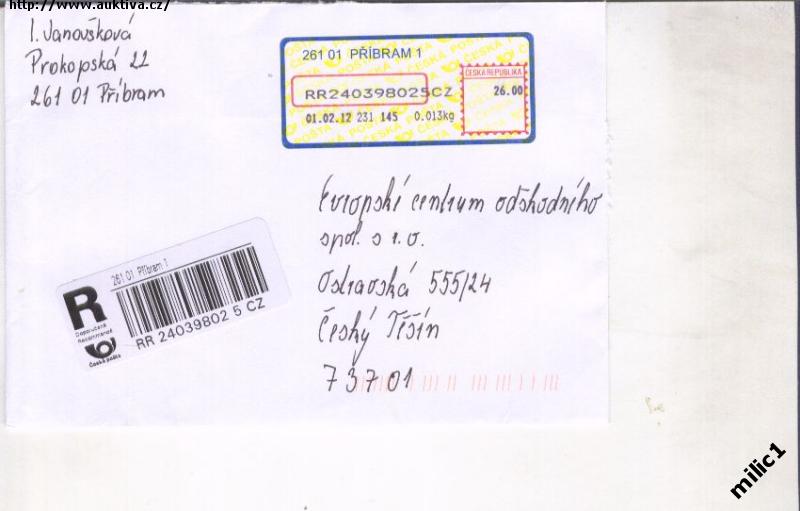 http://www.auktiva.cz/
I. Janoušková
Prokopská 22
261 01 Příbram
261 01 PŘÍBRAM 1
ČESKÁ REPUBLIKA
RR240398025CZ
26.00
01.02.12 231 145 0.013kg
Evropské centrum odškodného
spol. s r.o.
Ostravská 555/24
Český Těšín
73701
261 01 Příbram 1
R
Doporučeně
Recommandé
RR 24039802 5 CZ
Česká pošta
milic1